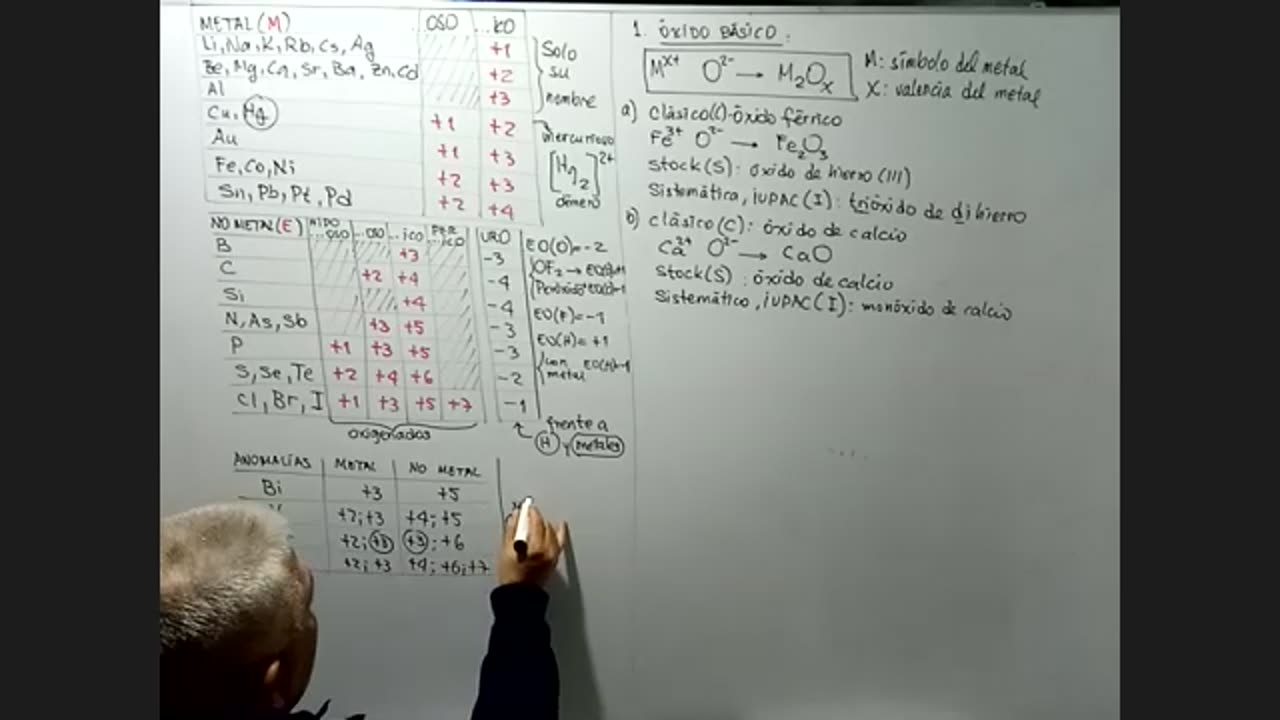 METAL (M) ...OSO ...ICO
Li, Na, K, Rb, Cs, Ag +1
Be, Mg, Ca, Sr, Ba, Zn, Cd +2
Al +3
Solo
su
nombre
Cu, Hg +1 +2
Au +1 +3
Fe, Co, Ni +2 +3
Sn, Pb, Pt, Pd +2 +4
mercurioso
[Hg2]2+
dímero
NO METAL (E) HIPO ...OSO ...OSO ...ICO PER ...ICO URO
B +3 -3
C +2 +4 -4
Si +4 -4
N, As, Sb +3 +5 -3
P +1 +3 +5 -3
S, Se, Te +2 +4 +6 -2
Cl, Br, I +1 +3 +5 +7 -1
oxigenados
EO(O)=-2
OF2 →
EO(F)=-1
EO(H)=+1
con
metal
frente a
H y metales
ANOMALÍAS METAL NO METAL
Bi +3 +5
+2; +3 +4; +5
+2; +3 +3; +6
+2; +3 +4; +6; +7
1. ÓXIDO BÁSICO:
Mx+ O2- → M2Ox
M: símbolo del metal
X: valencia del metal
a) clásico(C)-óxido férrico
Fe3+ O2- → Fe2O3
Stock(S): óxido de hierro (III)
Sistemática, iUPAC(I): trióxido de dihierro
b) clásico(C): óxido de calcio
Ca2+ O2- → CaO
Stock(S): óxido de calcio
Sistemático, iUPAC(I): monóxido de calcio